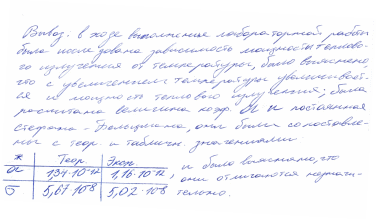 Вывод: в ходе выполнения лабораторной работы
была исследована зависимость мощности теплово-
го излучения от температуры, было выяснено,
что с увеличением температуры увеличивает-
ся и мощность теплового излучения; была
рассчитана величина коэф. α и постоянная
Стефана-Больцмана, они были сопоставле-
ны с теор и табличн. значениями
Теор. Эксп.
α 1,34·10⁻¹² 1,16·10⁻¹² , и было выяснено, что
σ 5,67·10⁻⁸ 5,02·10⁻⁸ они отличаются незначи-
тельно.